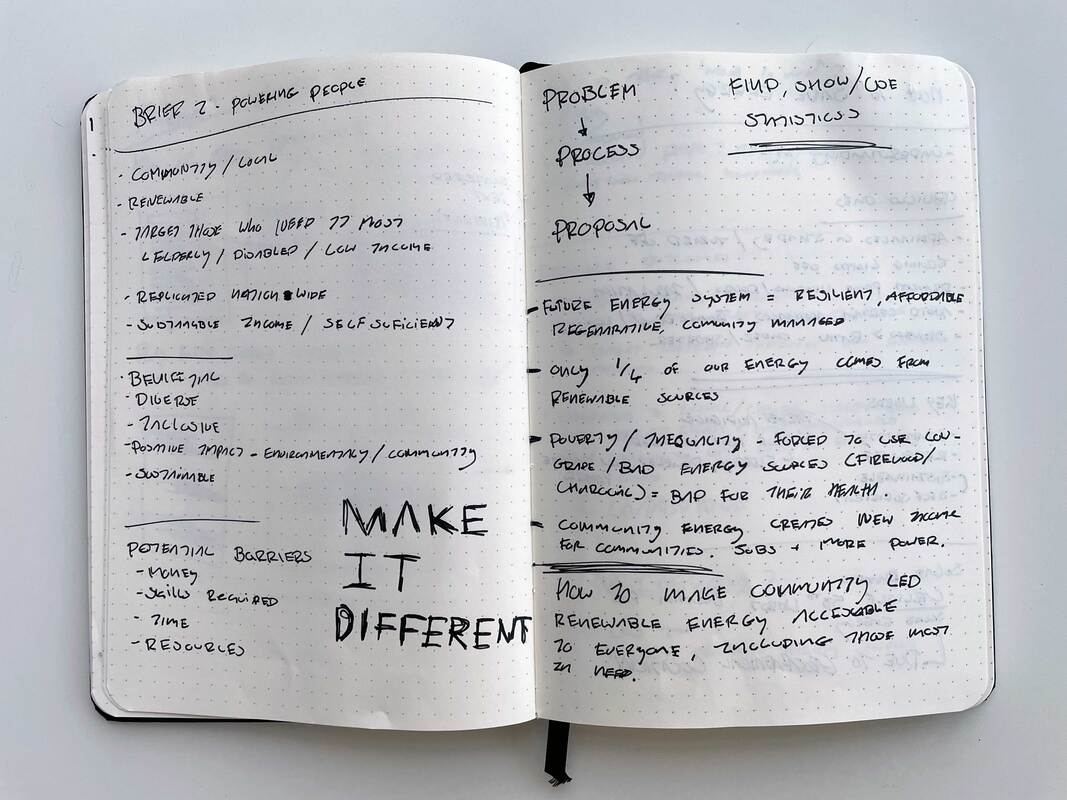 BRIEF 2 - POWERING PEOPLE
- COMMUNITY / LOCAL
- RENEWABLE
- TARGET THOSE WHO NEED IT MOST
ELDERLY / DISABLED / LOW INCOME
- REPLICATED NATION WIDE
- SUSTAINABLE INCOME / SELF SUFICIENT
- BENEFICIAL
- DIVERSE
- INCLUSIVE
- POSITIVE IMPACT - ENVIRONMENTALY / COMMUNITY
- SUSTAINABLE
POTENTIAL BARRIERS
- MONEY
- SKILLS REQUIRED
- TIME
- RESOURCES
MAKE
IT
DIFFERENT
PROBLEM
↓
PROCESS
↓
PROPOSAL
FIND, SHOW/USE
STATISTICS
- FUTURE ENERGY SYSTEM = RESILIENT, AFFORDABLE
REGENARATIVE, COMUNITY MANAGED
- ONLY 1/4 OF OUR ENERGY COMES FROM
RENEWABLE SOURCES
- POVERTY / INEQUALITY - FORCED TO USE LOW-
GRADE / BAD ENERGY SOURCES (FIREWOOD/
CHARCOAL) = BAD FOR THEIR HEALTH.
- COMMUNITY ENERGY CREATES NEW INCOME
FOR COMMUNITIES. JOBS + MORE POWER.
HOW TO MAKE COMMUNITY LED
RENEWABLE ENERGY ACCESSABLE
TO EVERYONE, INCLUDING THOSE MOST
IN NEED.